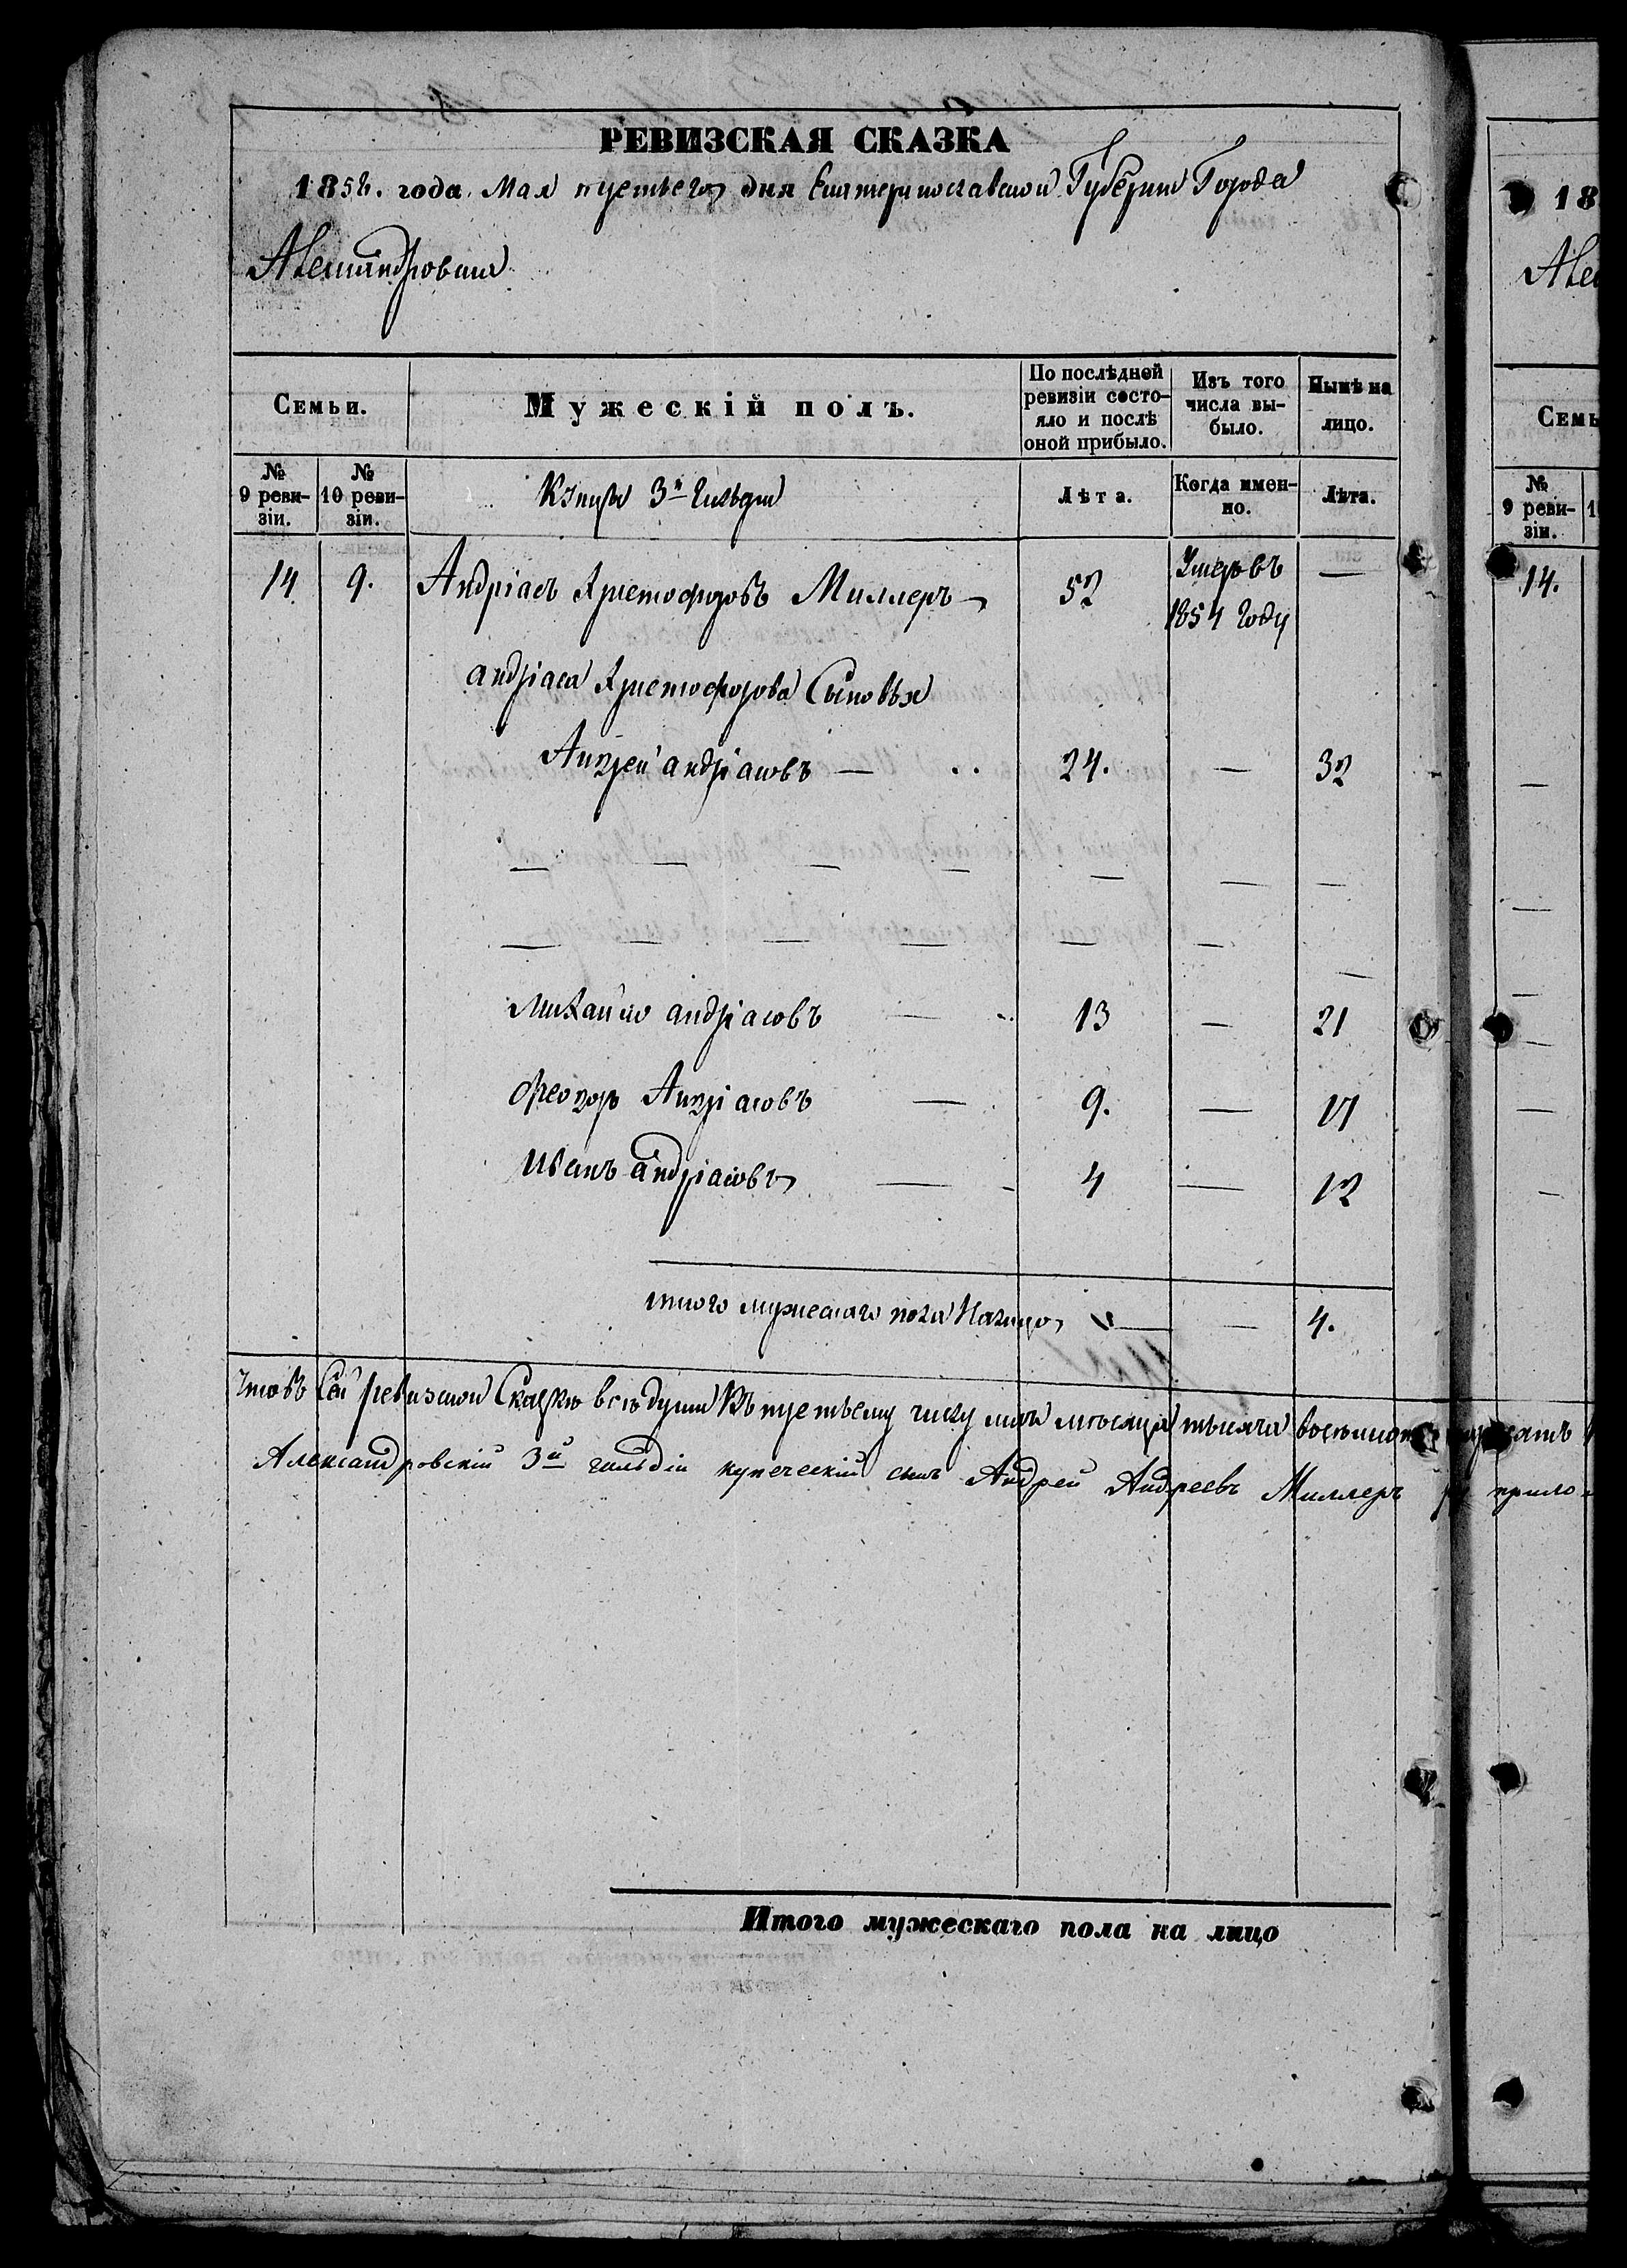 РЕВИЗСКАЯ СКАЗКА
1858. года Мая третьего дня Екатеринославской Губерніи Города
Александровска
Семьи.
Мужескій полъ.
По послѣдней ревизіи состо-
яло и послѣ
оной прибыло.
Изъ того
числа вы-
было.
Нынѣ на
лицо.
№
9 реви-
зіи.
№
10 реви-
зіи.
Купцы 3й Гильдіи
Лѣта.
Когда имен-
но.
Лѣта.
14 9. Андріасъ Христофоровъ Миллеръ 52 Умеръ въ —
1854 Году
андріаса Христофорова Сыновья
Андрей андріасовъ — 24. — 32
— — — — — — —
— — — — — — —
Михайло андріасовъ — 13 — 21
Феодоръ Андріасовъ — 9. — 17
Иванъ андріасовъ — 4 — 12
итого мужескаго пола Налицо — — 4.
Александровскій 3й гильдіи купеческій сынъ Андрей Андреевъ Миллеръ прило-
Итого мужескаго пола на лицо
18
Але
Семь
№
9 реви-
зіи.
1
14.